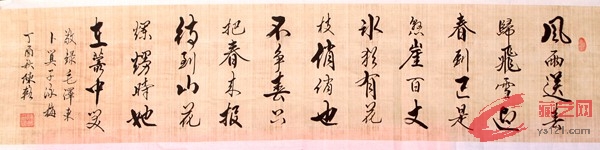 風雨送春
歸飛雪迎
春到已是
懸崖百丈
冰犹有花
枝俏俏也
不争春只
把春来报
待到山花
爛熳時她
在叢中笑
敬録毛澤東
卜算子詠梅
丁酉秋陳
藏艺网
ys121.com